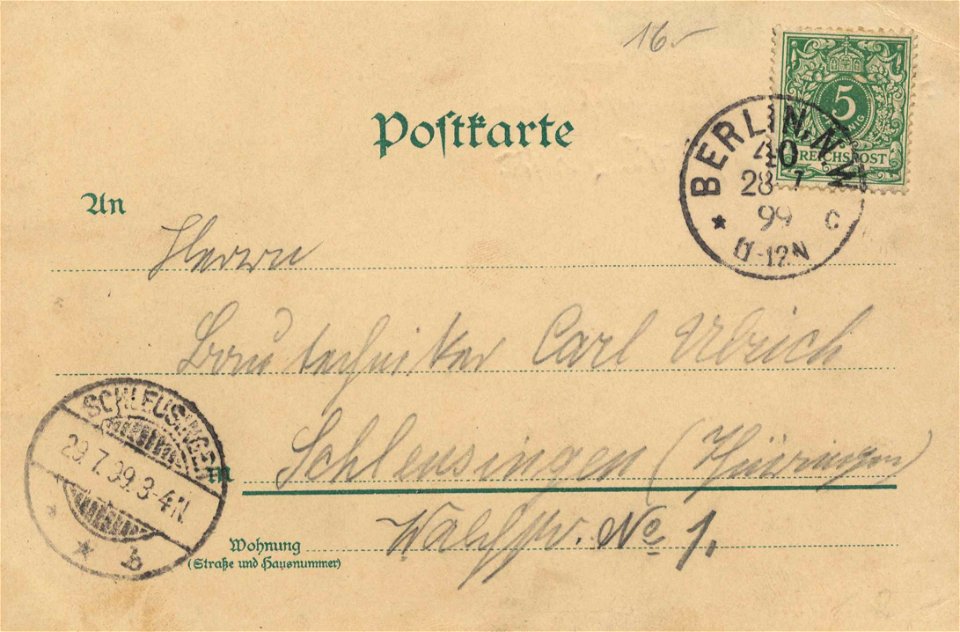 16.-
Postkarte
5
PFENNIG
REICHSPOST
BERLIN, N.W.
40
28 7
99 C
11-12N
An
Herrn
Bautechniker Carl Ulrich
SCHLEUSINGEN
29.7.99.3-4N.
b
in Schleusingen (Thüringen)
No 1.
Wohnung
(Straße und Hausnummer)